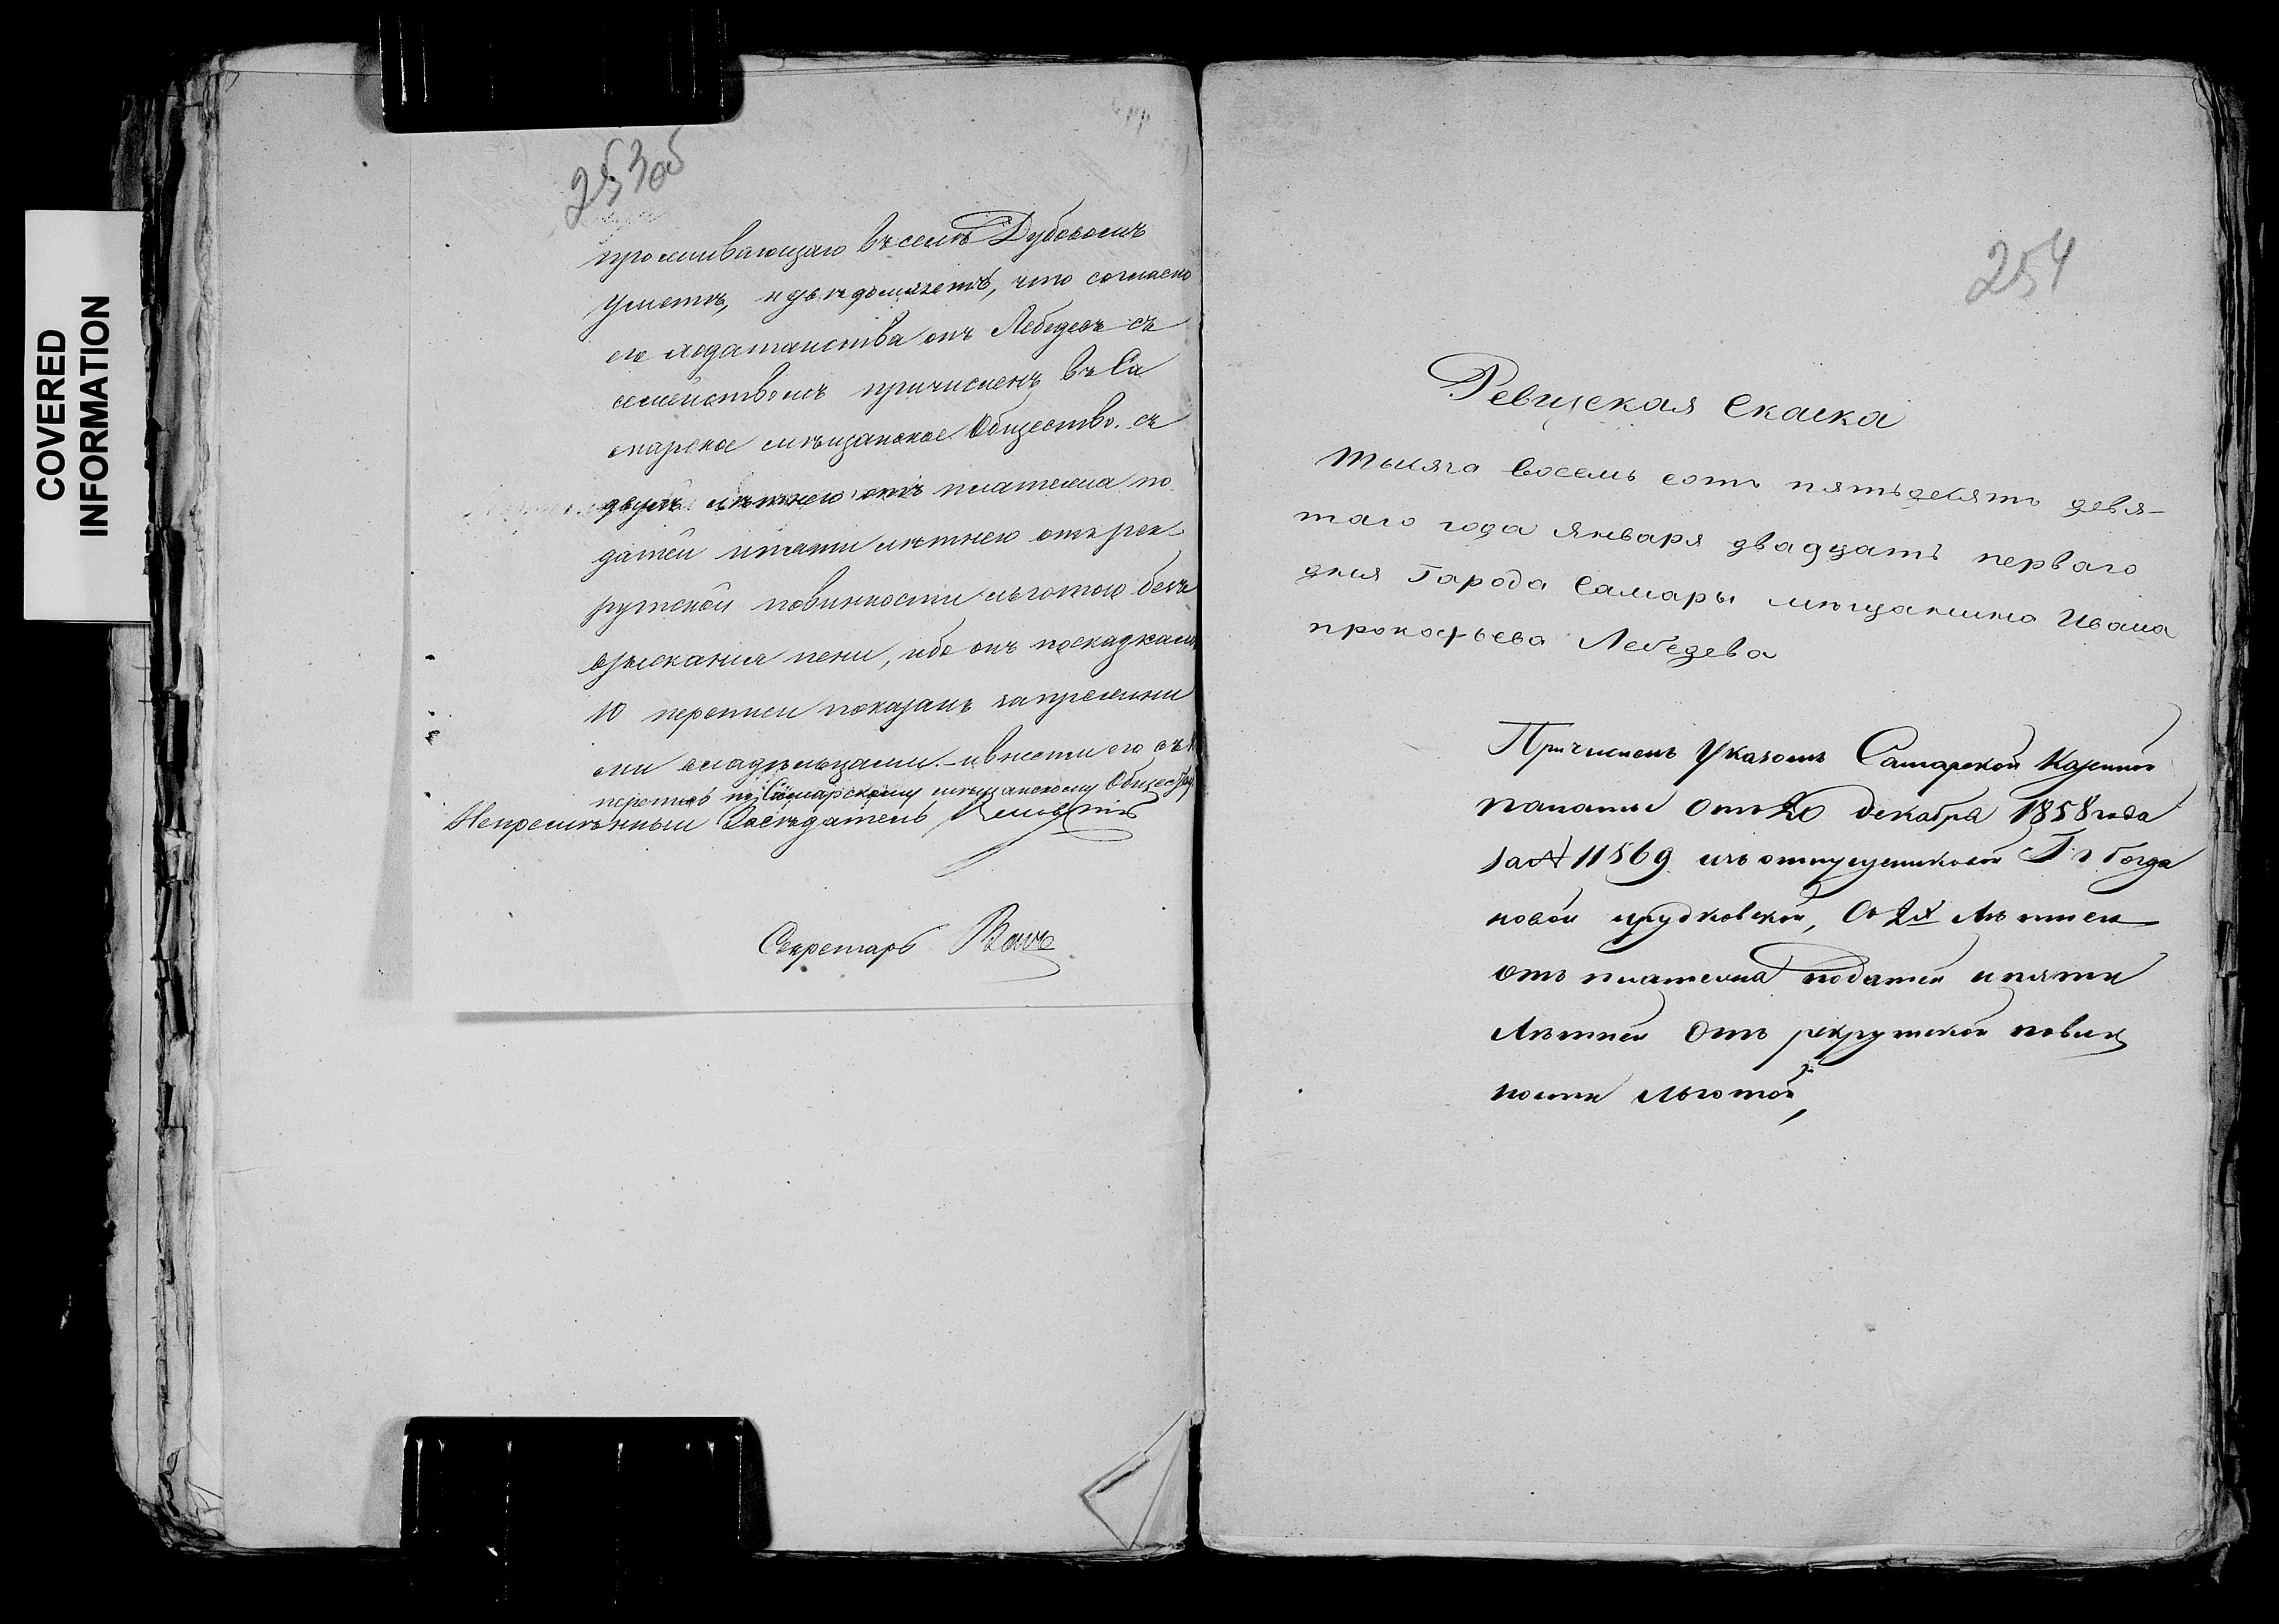 COVERED
INFORMATION
253об
проживающаго въ селѣ Дубовомъ
Уметѣ, и увѣдомляетъ, что согласно
его ходатайства онъ Лебедевъ съ
семействомъ причисленъ въ Са
марское мѣщанское Общество. съ
двухъ лѣтнею отъ платежа по
датей и пяти лѣтнею отъ рек-
рутской повинности льготою безъ
взысканія пени, ибо онъ по сказкамъ
10 переписи показанъ за прежни
ми владѣльцами. - и внести его въ
перепись по Самарскому мѣщанскому Обществу.
Непремѣнный Засѣдатель
Секретарь
254
Ревизская Скаска
тысяча восемь сотъ пятьдесятъ девя-
таго года Января двадцать перваго
дня Города Самары мѣщанина Ивана
прокофьева Лебедева
Причисленъ Указомъ Самарской Казенной
палаты отъ 20 декабря 1858 года
за № 11569 изъ отпущенниковъ Г.
новой, Съ 2х Лѣтней
отъ платежа податей и пяти
Лѣтней Отъ рекрутской повин
ности льготой,